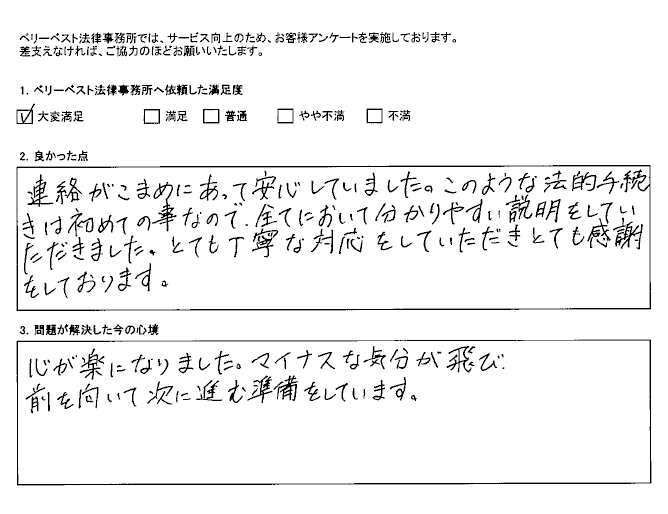 ベリーベスト法律事務所では、サービス向上のため、お客様アンケートを実施しております。
差支えなければ、ご協力のほどお願いいたします。
1. ベリーベスト法律事務所へ依頼した満足度
☑大変満足 □満足 □普通 □やや不満 □不満
2. 良かった点
連絡がこまめにあって安心していました。このような法的手続
きは初めての事なので、全てにおいて分かりやすい説明をしてい
ただきました。とても丁寧な対応をしていただきとても感謝
をしております。
3. 問題が解決した今の心境
心が楽になりました。マイナスな気分が飛び、
前を向いて次に進む準備をしています。